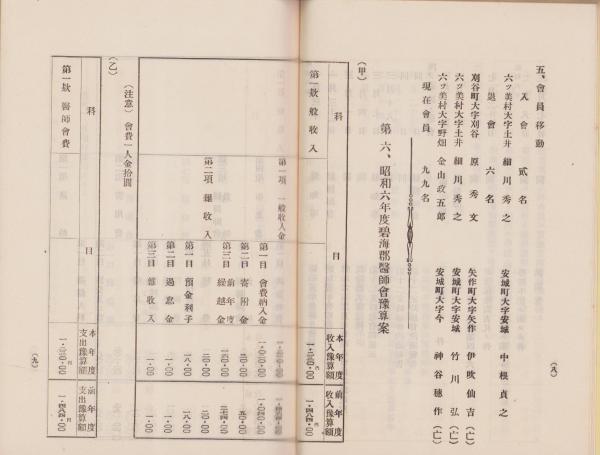 五、會員移動
入會　貳名
六ツ美村大字土井　細川秀之　安城町大字安城　中根貞之
退會　六名
刈谷町大字刈谷　原秀文　矢作町大字矢作　伊吹仙吉（亡）
六ツ美村大字土井　細川秀之　安城町大字安城　竹川弘（亡）
六ツ美村大字野畑　金山政五郎　安城町大字今　神谷穂作（亡）
現在會員　九九名
（八）
第六、昭和六年度碧海郡醫師會豫算案
（甲）
科　目　本年度收入豫算額　前年度收入豫算額
第一款　般收入　一・三三〇・〇〇　一・四八四・〇〇
第一項　一般收入金
第一目　會費納入金
第二目　寄附金
第三目　前年度繰越金
第二項　雜收入
第一目　預金利子
第二目　過怠金　一・〇〇　一・〇〇
第三目　雜收入　一・〇〇　一・〇〇
（注意）會費一人金拾圓
（乙）
科　目　本年度支出豫算額　前年度支出豫算額
第一款　醫師會費　一・三三〇・〇〇　一・四八四・〇〇
（九）